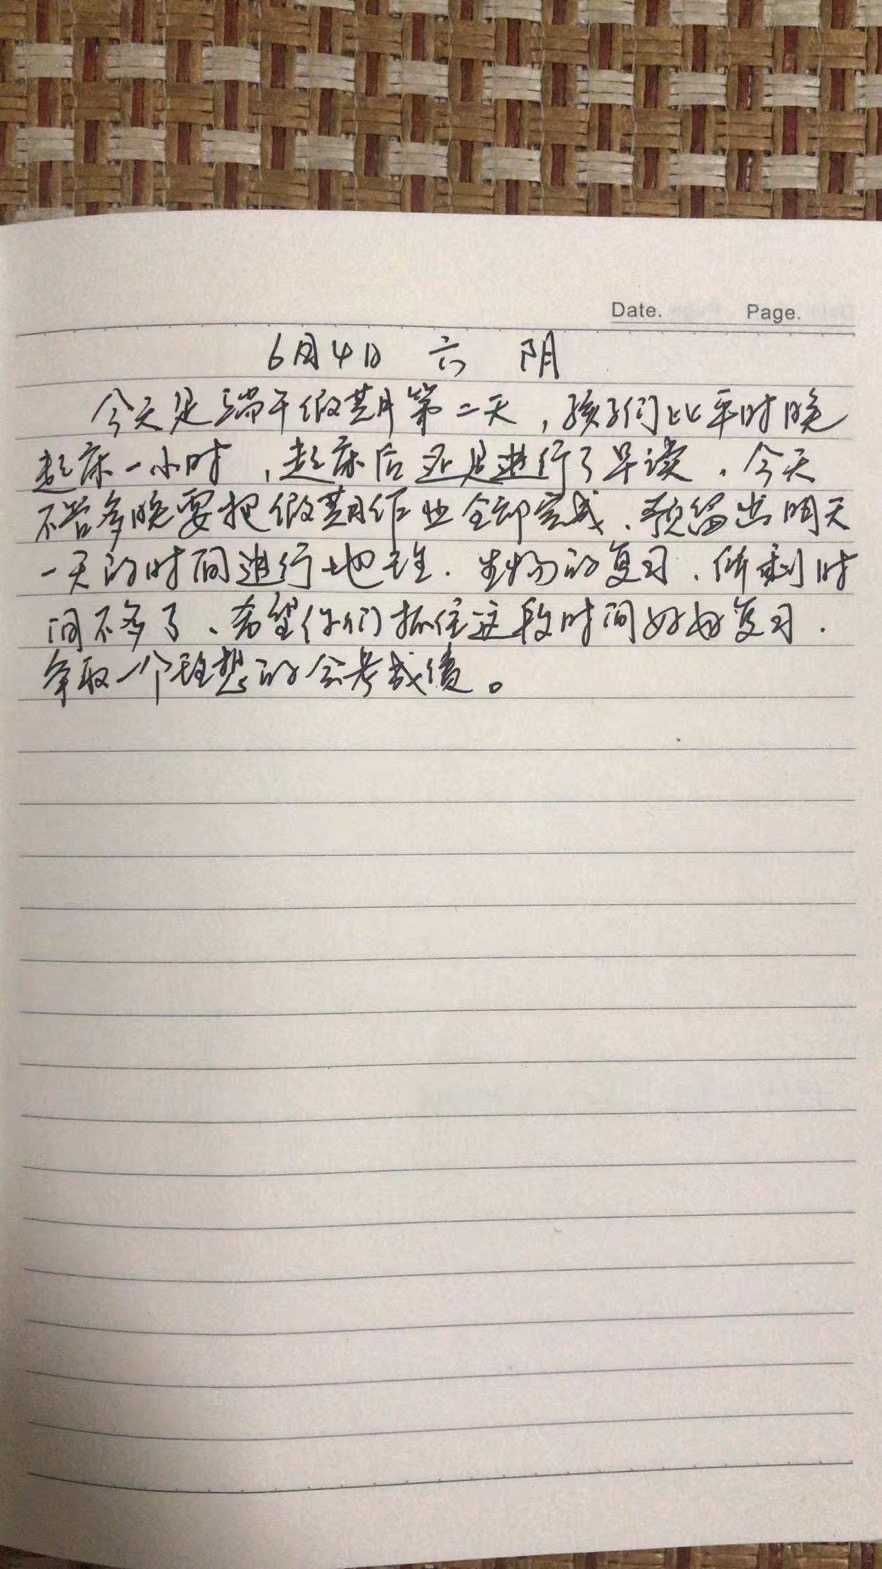 Date. Page.
6月4日 六 阴
今天是端午假期第二天,孩子们比平时晚
起床一小时,起床后还是进行了早读,今天
不管多晚要把假期作业全部完成、预留出明天
一天的时间进行地理、生物的复习、所剩时
间不多了、希望你们抓住这段时间好好复习,
争取一个理想的会考成绩。